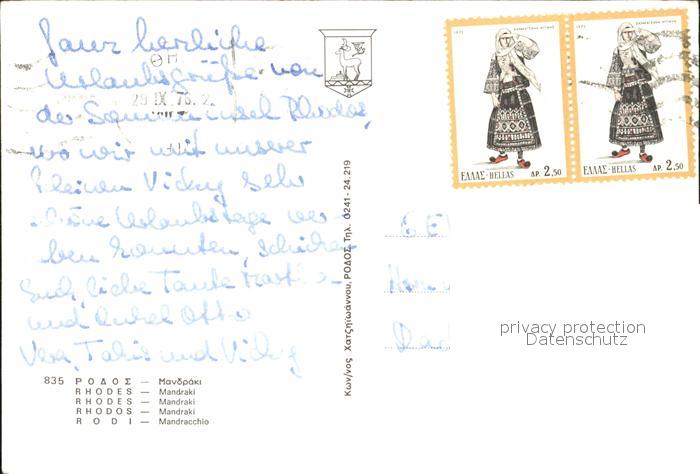 Ganz herzliche
Urlaubsgrüße von
der Sonneninsel Rhodos,
wo wir mit unserer
kleinen Vicky sehr
schöne Urlaubstage ver-
leben konnten, schicken
Euch, liebe Tante Martha
und Onkel Otto
Vera, Takis und Vicky
29 IX. 76. 2
1972
ΕΛΛΑΣ-HELLAS ΔΡ. 2,50
1972
ΕΛΛΑΣ-HELLAS ΔΡ. 2,50
Κων/νος Χατζηϊωάννου, ΡΟΔΟΣ. Τηλ. 0241-24.219
privacy protection
Datenschutz
835 ΡΟΔΟΣ — Μανδράκι
RHODES — Mandraki
RHODES — Mandraki
RHODOS — Mandraki
RODI — Mandracchio